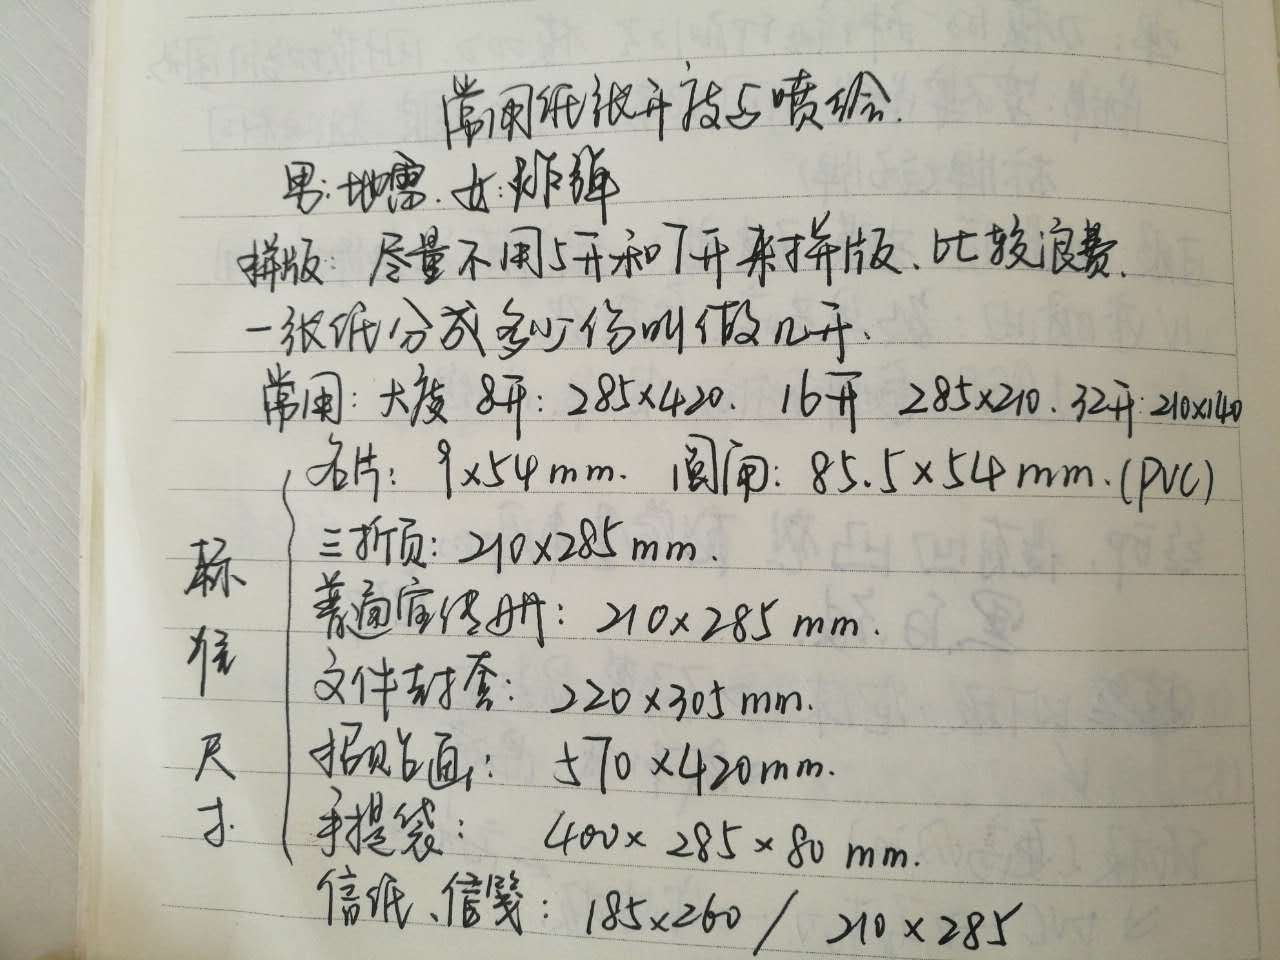 常用纸张开度与喷绘.
男:地雷.女:炸弹
拼版:尽量不用5开和7开来拼版、比较浪费.
一张纸分成多少份叫做几开.
常用:大度 8开:285×420. 16开 285×210.32开:210×140
名片:9×54mm. 圆角:85.5×54mm.(PVC)
三折页:210×285mm.
普通宣传册:210×285mm.
文件封套:220×305mm.
招贴画:570×420mm.
手提袋: 400×285×80mm.
信纸、信笺:185×260/210×285
标准尺寸.